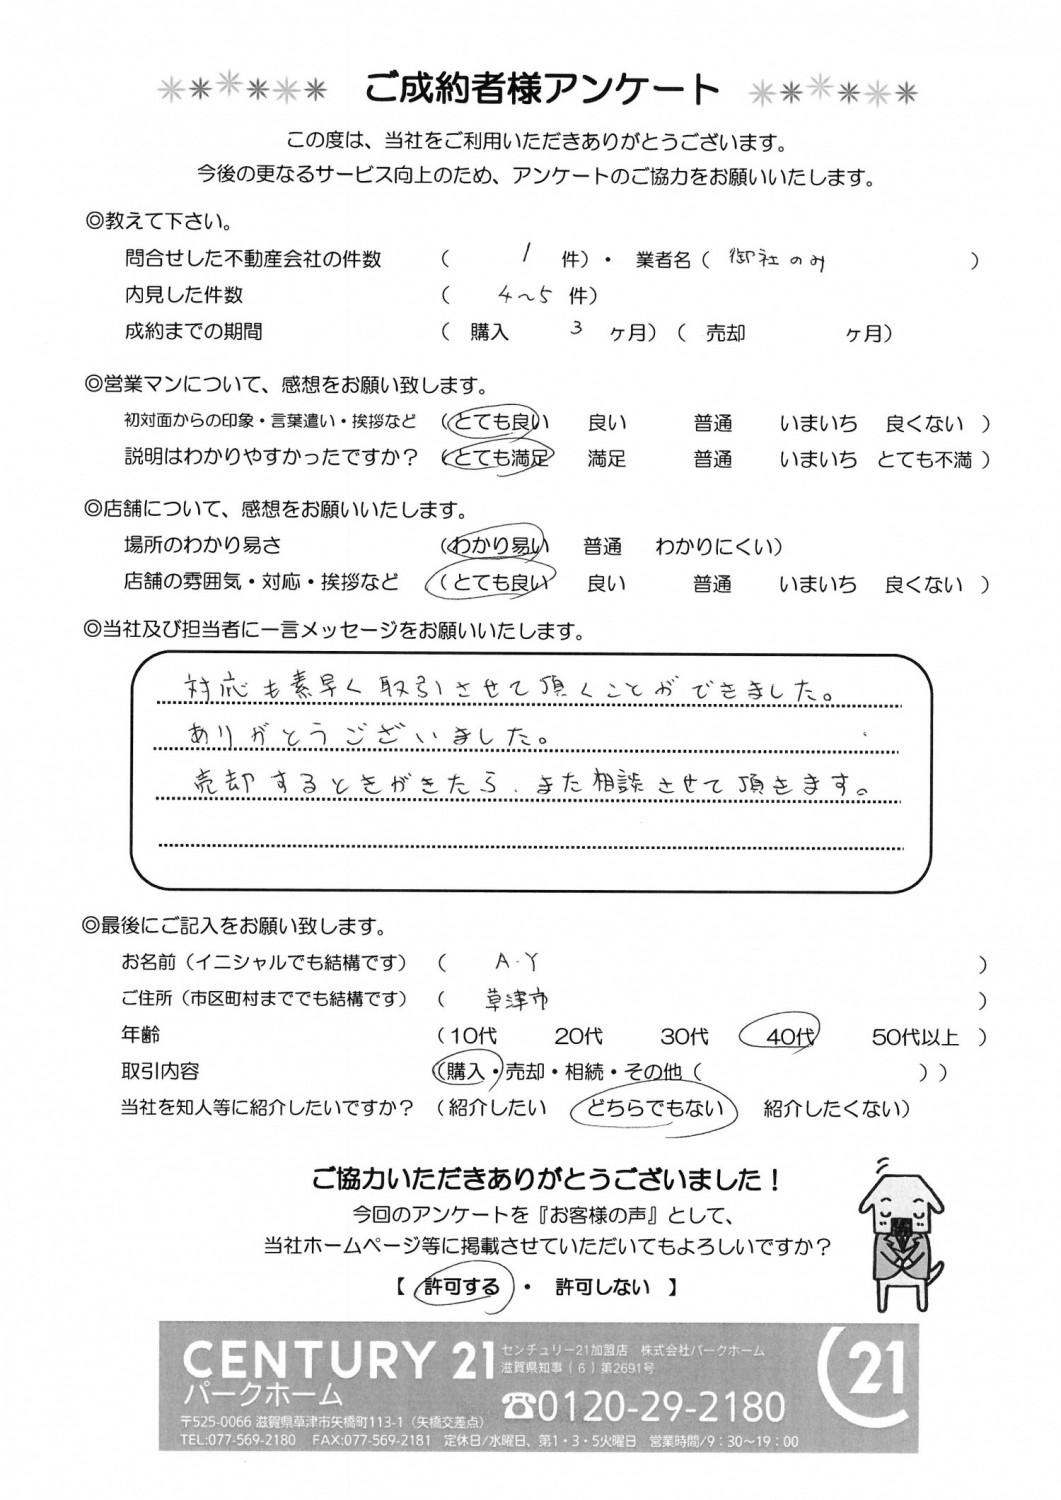 ご成約者様アンケート
この度は、当社をご利用いただきありがとうございます。
今後の更なるサービス向上のため、アンケートのご協力をお願いいたします。
◎教えて下さい。
問合せした不動産会社の件数 ( 1 件)・ 業者名 ( 御社のみ )
内見した件数 ( 4〜5 件)
成約までの期間 ( 購入 3 ヶ月) ( 売却 ヶ月)
◎営業マンについて、感想をお願い致します。
初対面からの印象・言葉遣い・挨拶など ( とても良い 良い 普通 いまいち 良くない )
説明はわかりやすかったですか? ( とても満足 満足 普通 いまいち とても不満 )
◎店舗について、感想をお願いいたします。
場所のわかり易さ (わかり易い 普通 わかりにくい)
店舗の雰囲気・対応・挨拶など ( とても良い 良い 普通 いまいち 良くない )
◎当社及び担当者に一言メッセージをお願いいたします。
対応も素早く取引させて頂くことができました。
ありがとうございました。
売却するときがきたら、また相談させて頂きます。
◎最後にご記入をお願い致します。
お名前(イニシャルでも結構です) ( A.Y )
ご住所(市区町村まででも結構です) ( 草津市 )
年齢 (10代 20代 30代 40代 50代以上 )
取引内容 ((購入・売却・相続・その他 ( ) )
当社を知人等に紹介したいですか? (紹介したい どちらでもない 紹介したくない)
ご協力いただきありがとうございました!
今回のアンケートを『お客様の声』として、
当社ホームページ等に掲載させていただいてもよろしいですか?
【 許可する ・ 許可しない 】
CENTURY 21 センチュリー21加盟店 株式会社パークホーム
滋賀県知事(6)第2691号
パークホーム
☎0120-29-2180
21
〒525-0066 滋賀県草津市矢橋町113-1(矢橋交差点)
TEL:077-569-2180 FAX:077-569-2181 定休日/水曜日、第1・3・5火曜日 営業時間/9:30〜19:00